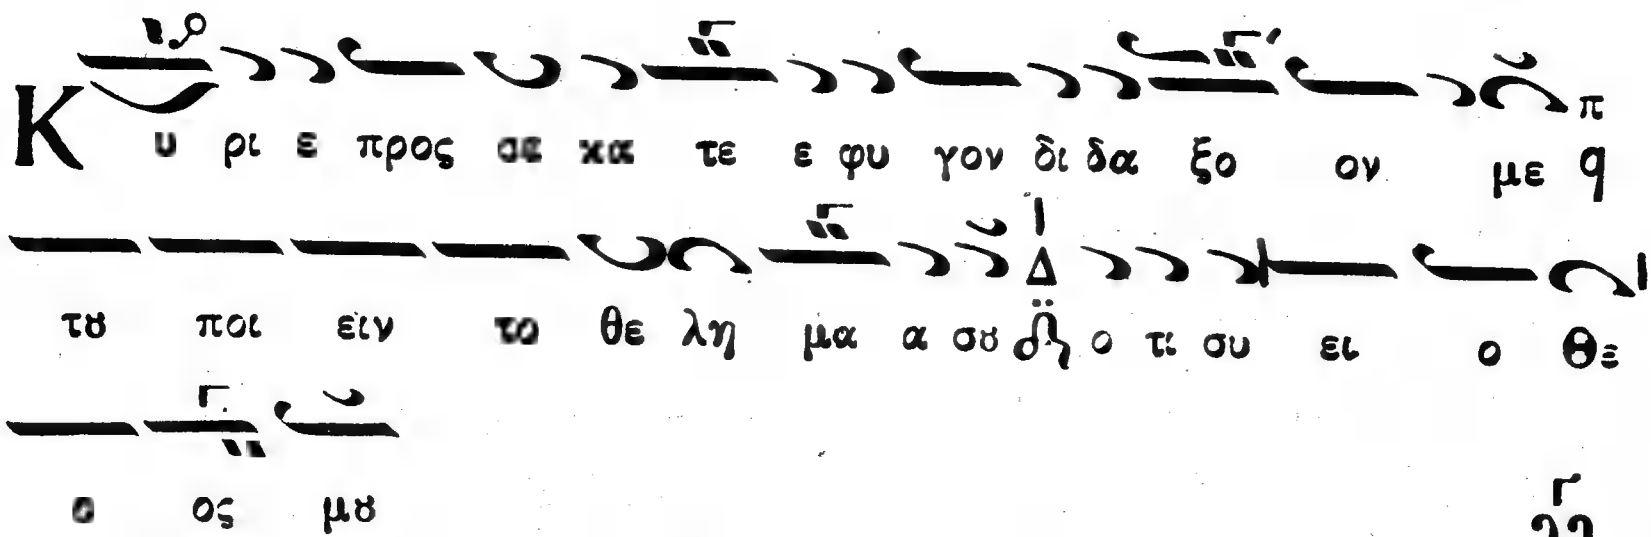 Κ υ ρι ε προς σε κα τε ε φυ γον δι δα ξο ον με π q
τȣ ποι ειν το θε λη μα α σȣ Δ ο τι συ ει ο Θε
ο ος μȣ